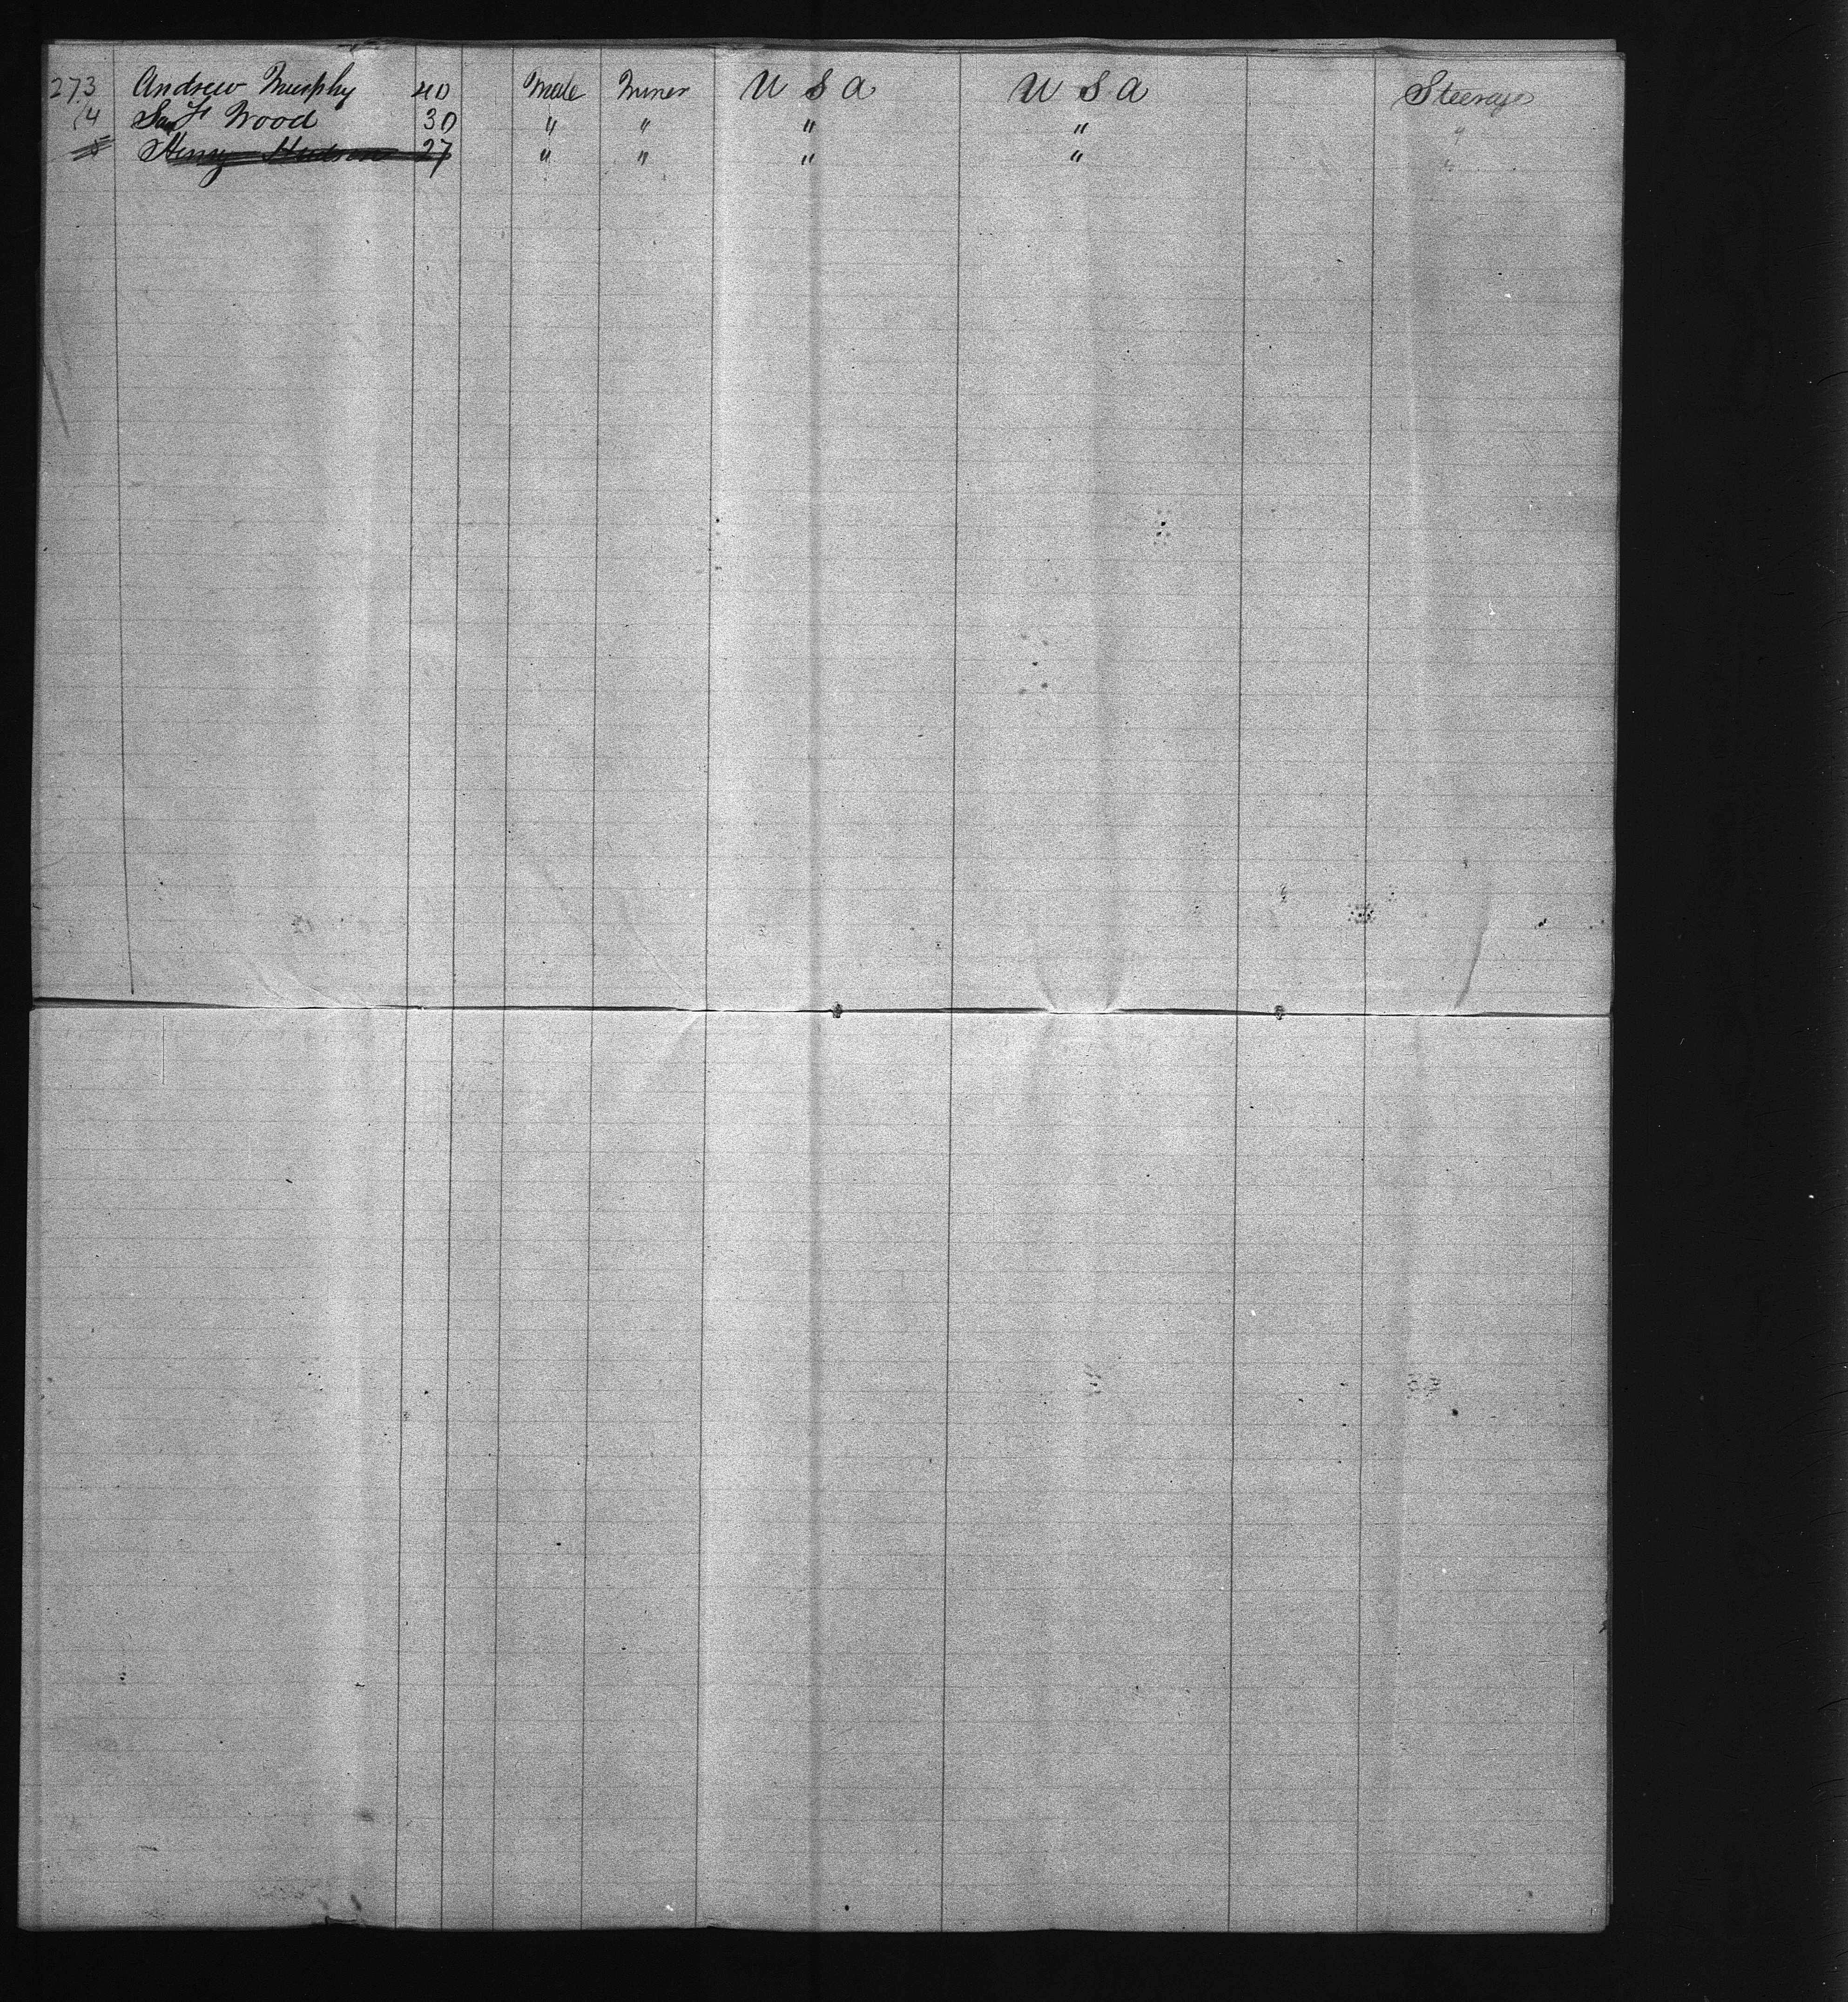 273 Andrew Murphy 40 Male Miner U S A U S A Steerage
/4 Wood 30 " " " " "
5 Henry Hudson 27 " " " " "